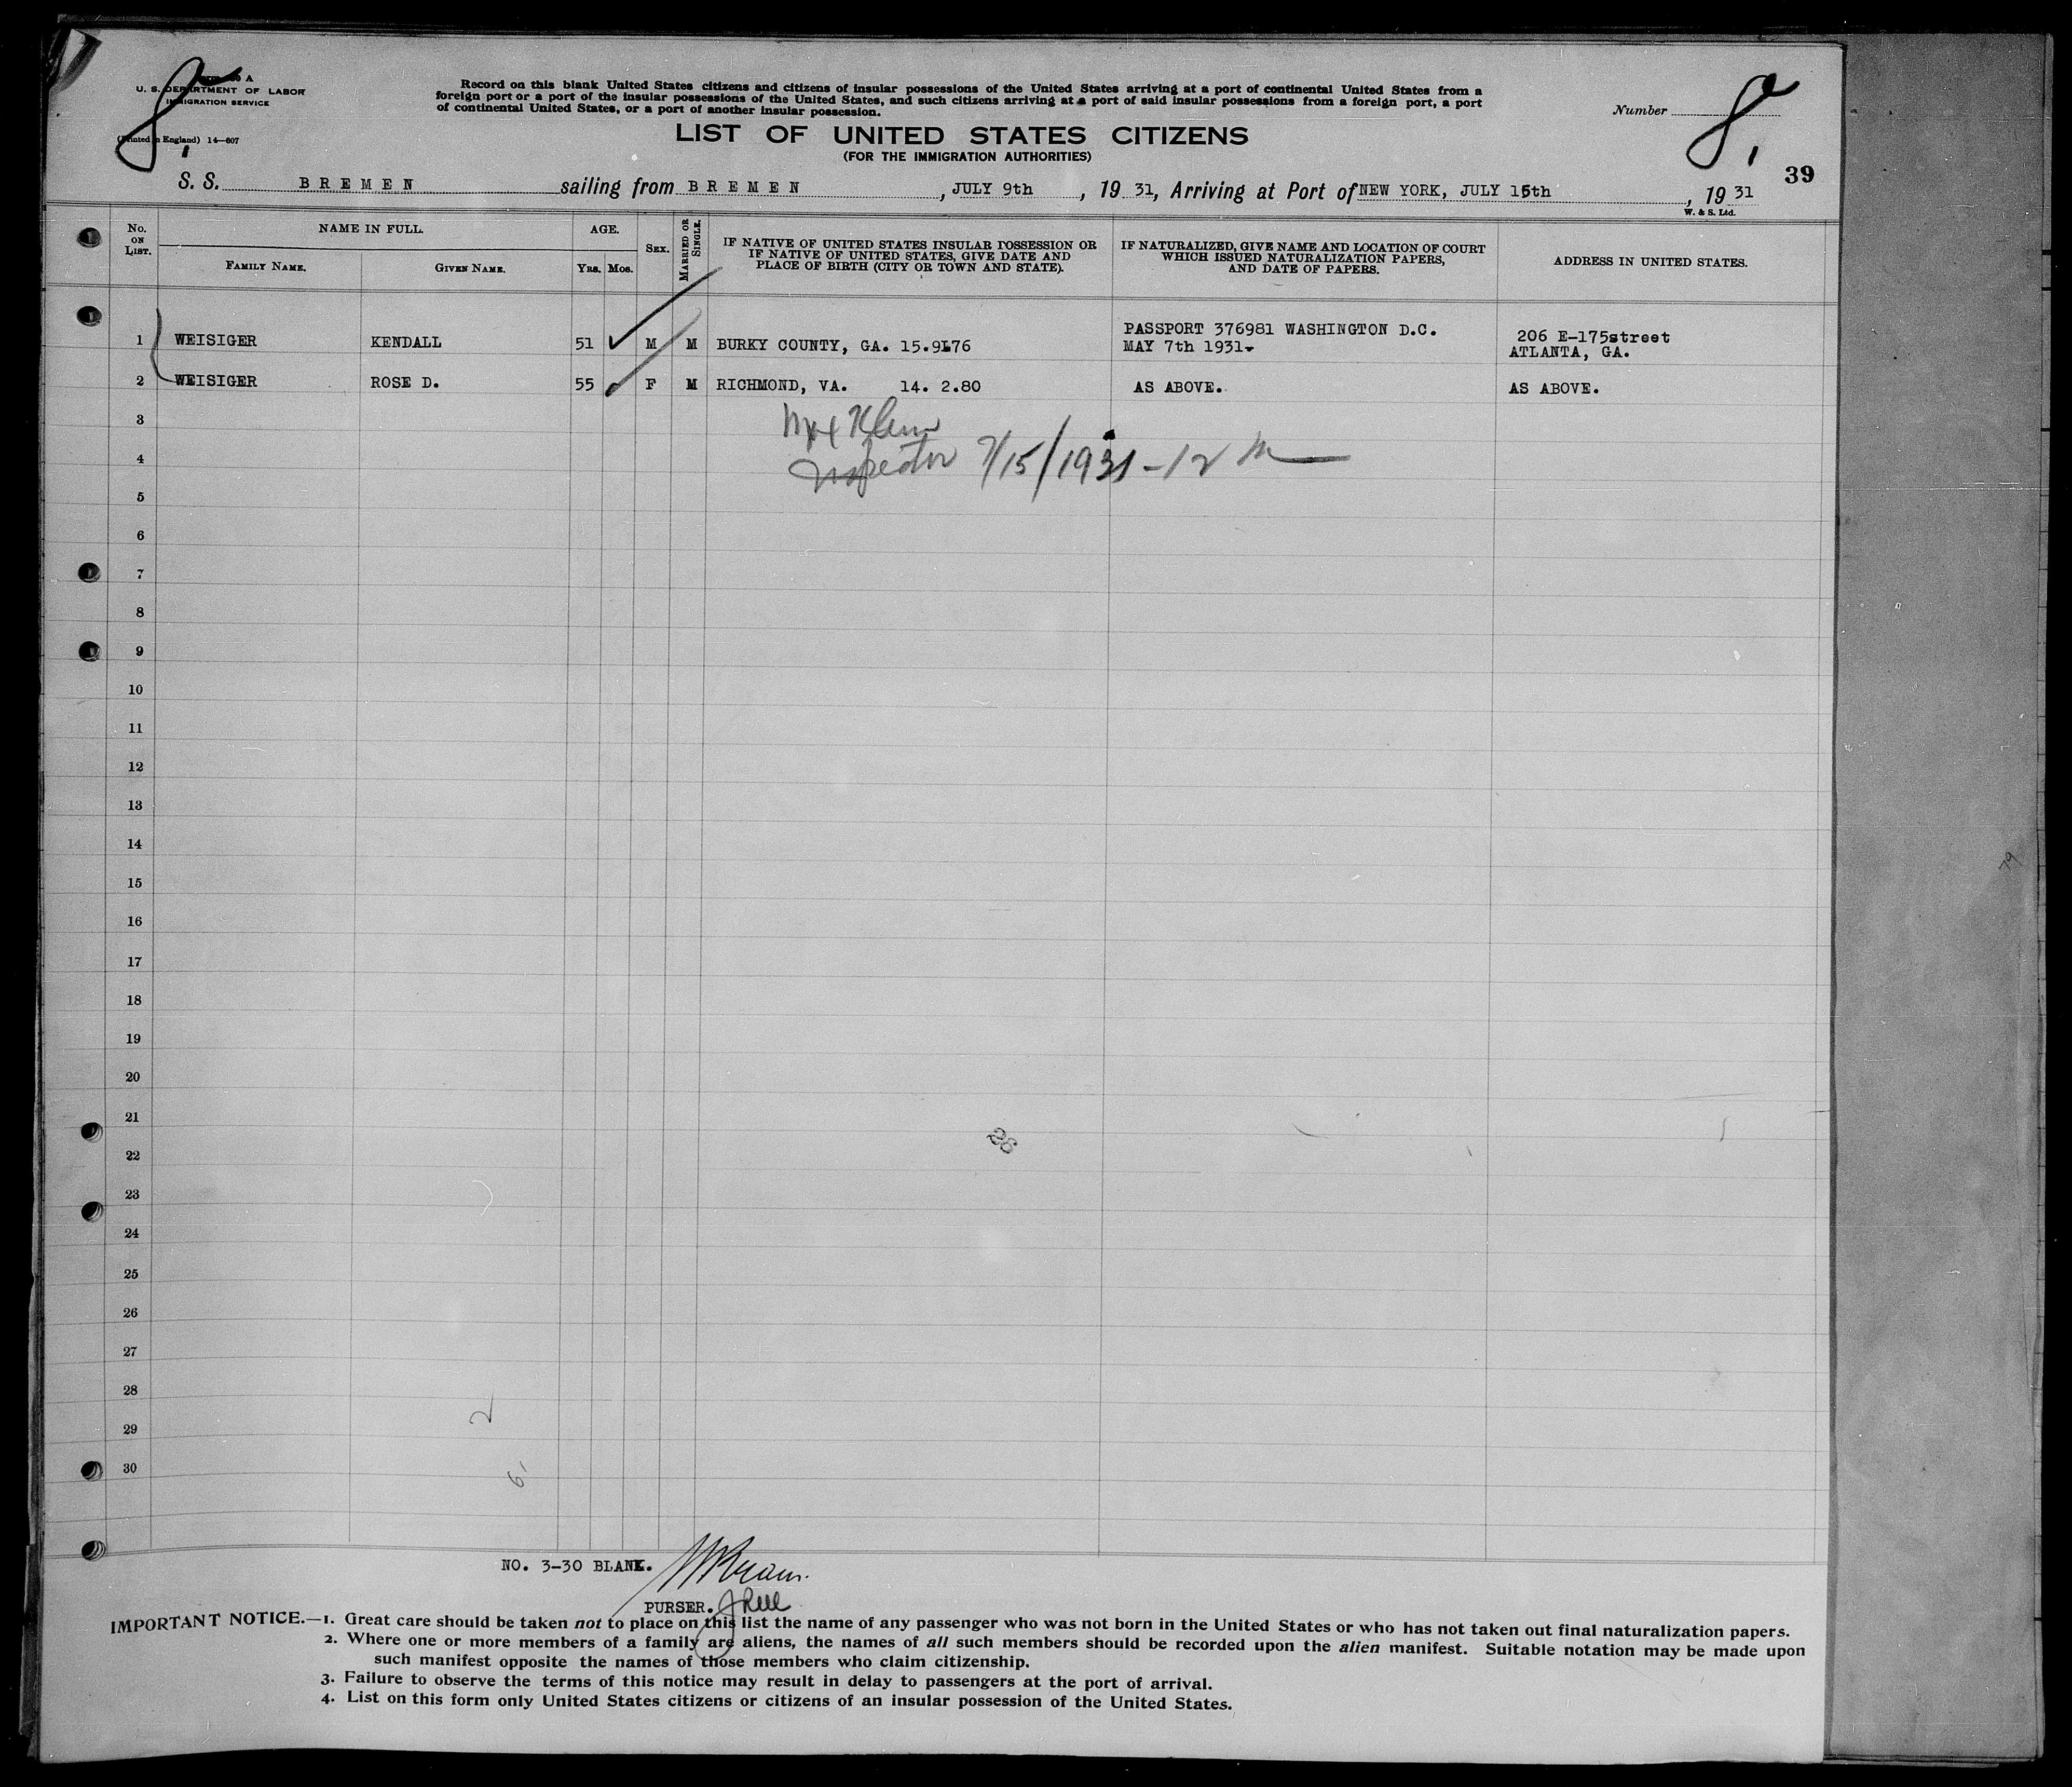 U. S. DEPARTMENT OF LABOR
IMMIGRATION SERVICE
(Printed in England) 14—607
Record on this blank United States citizens and citizens of insular possessions of the United States arriving at a port of continental United States from a
foreign port or a port of the insular possessions of the United States, and such citizens arriving at a port of said insular possessions from a foreign port, a port
of continental United States, or a port of another insular possession.
Number 8,
8,
LIST OF UNITED STATES CITIZENS
(FOR THE IMMIGRATION AUTHORITIES)
39
S. S. BREMEN sailing from BREMEN, JULY 9th, 19 31, Arriving at Port of NEW YORK, JULY 15th, 19 31
W. & S. Ltd.
No. ON LIST. NAME IN FULL. FAMILY NAME. GIVEN NAME. AGE. YRS. MOS. SEX. MARRIED OR SINGLE. IF NATIVE OF UNITED STATES INSULAR POSSESSION OR IF NATIVE OF UNITED STATES, GIVE DATE AND PLACE OF BIRTH (CITY OR TOWN AND STATE). IF NATURALIZED, GIVE NAME AND LOCATION OF COURT WHICH ISSUED NATURALIZATION PAPERS, AND DATE OF PAPERS. ADDRESS IN UNITED STATES.
1 WEISIGER KENDALL 51 M M BURKY COUNTY, GA. 15.9.76 PASSPORT 376981 WASHINGTON D.C. MAY 7th 1931- 206 E-175street ATLANTA, GA.
2 WEISIGER ROSE D. 55 F M RICHMOND, VA. 14. 2.80 AS ABOVE. AS ABOVE.
3
4 Inspector 7/15/1931-12 M
5
6
7
8
9
10
11
12
13
14
15
16
17
18
19
20
21
22
23
24
25
26
27
28
29
30
NO. 3-30 BLANK.
PURSER.
IMPORTANT NOTICE.—1. Great care should be taken not to place on this list the name of any passenger who was not born in the United States or who has not taken out final naturalization papers.
2. Where one or more members of a family are aliens, the names of all such members should be recorded upon the alien manifest. Suitable notation may be made upon
such manifest opposite the names of those members who claim citizenship.
3. Failure to observe the terms of this notice may result in delay to passengers at the port of arrival.
4. List on this form only United States citizens or citizens of an insular possession of the United States.